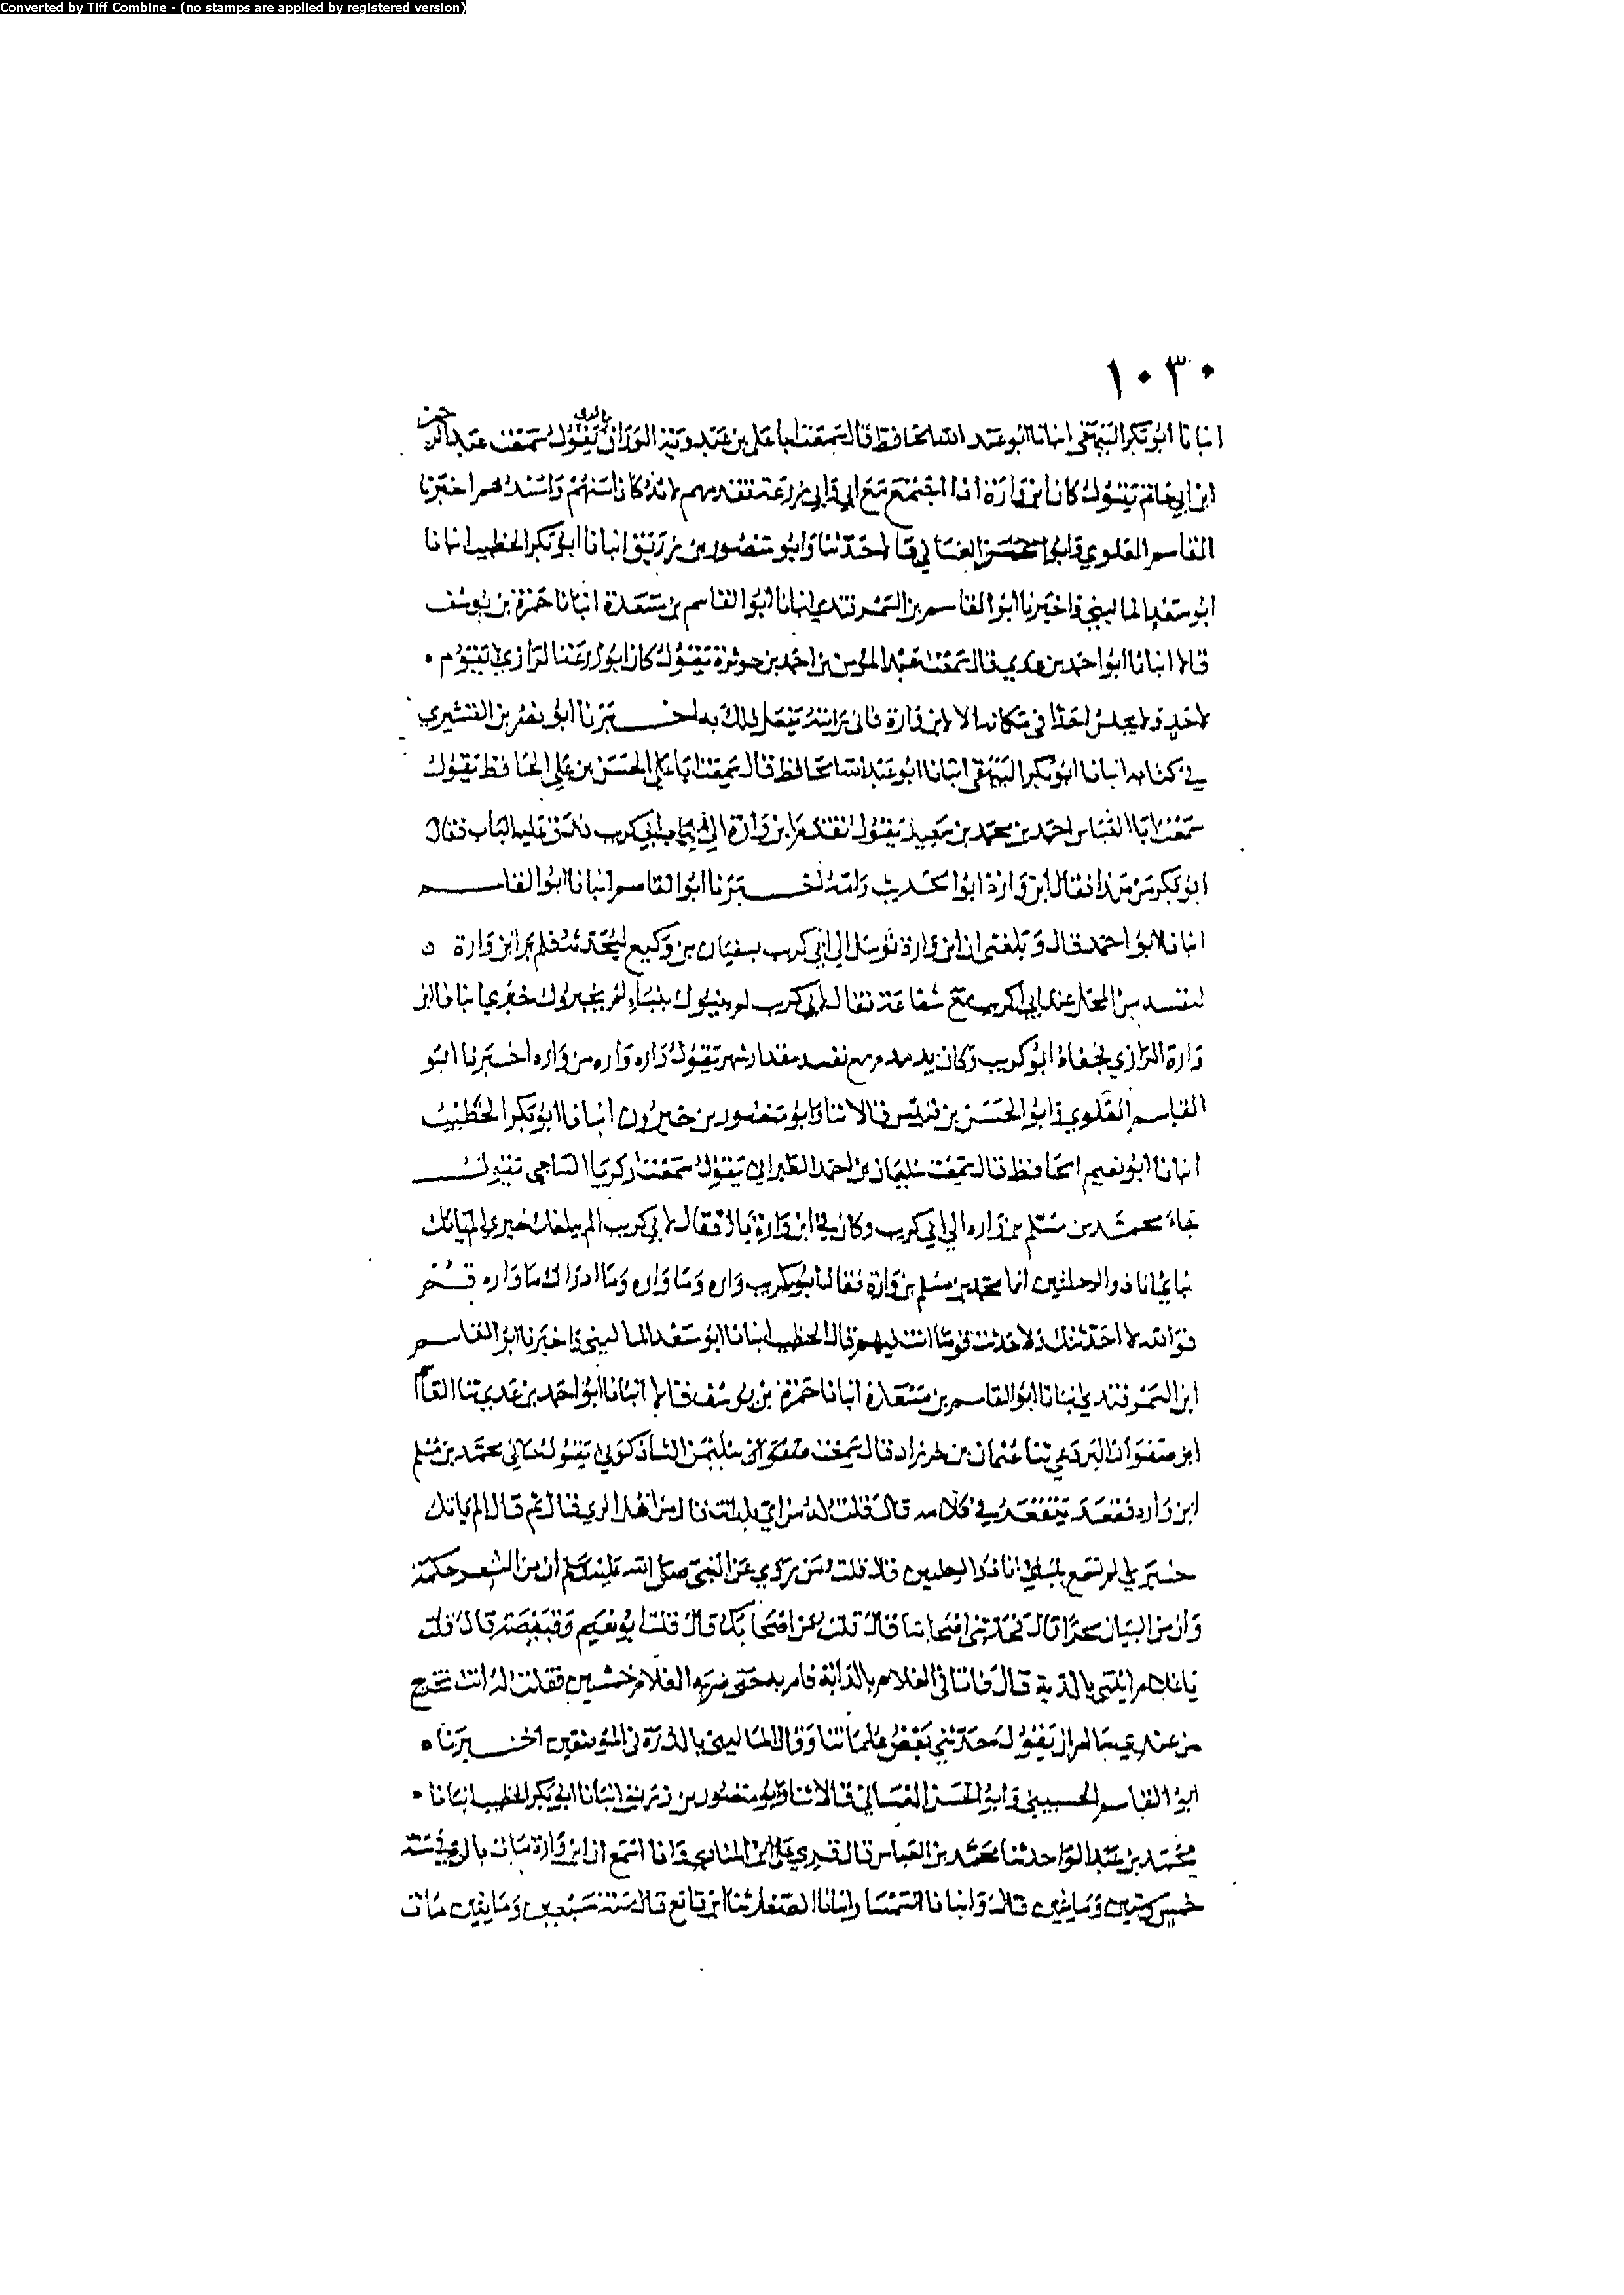 Converted by Tiff Combine - (no stamps are applied by registered version)
١٠٣٠
انبانا ابو بكر البيهقي انبانا ابو عبد الله الحافظ قال سمعت ابا علي بن عبدويه الوزان بالري يقول سمعت عبد الرحمن
ابن ابي حاتم يقول كان ابن وارة اذا اجتمع مع ابي وابي زرعة تقدمهم لانه كان اسنهم واسندهم اخبرنا
القاسم العلوي وابو الحسن الغساني قالا حدثنا وابو منصور بن زريق انبانا ابو بكر الخطيب انبانا
ابو سعد الماليني واخبرنا ابو القاسم بن السمرقندي انبانا ابو القاسم بن مسعدة انبانا حمزة بن يوسف
قالا انبانا ابو احمد بن عدي قال سمعت عبد المؤمن بن احمد بن حوثرة يقول كان ابو زرعة الرازي لا يقوم
لاحد ولا يجلس احدا في مكانه الا لابن وارة فاني رايته يفعل ذلك به اخبرنا ابو نصر بن القشيري
في كتابه انبانا ابو بكر البيهقي انبانا ابو عبد الله الحافظ قال سمعت ابا علي الحسن بن علي الحافظ يقول
سمعت ابا العباس احمد بن محمد بن سعيد يقول تقدم ابن وارة الى باب ابي كريب فدق عليه الباب فقال
ابو بكر من هذا فقال ابن وارة ابو الحديث وامه اخبرنا ابو القاسم انبانا ابو القاسم
انبانا ابو احمد قال وبلغني ان ابن وارة توسل الي ابي كريب بسفيان بن وكيع ليحدثه فلم ير ابن وارة
لنفسه من المحل عند ابي كريب مع شفاعة فقال لابي كريب لم ينبوك بنباي لم يخبروك خبري انا ابن
وارة الرازي فجفاه ابو كريب وكان يدمدم مع نفسه مقدار شهر يقول واره واره من واره اخبرنا ابو
القاسم العلوي وابو الحسن بن قبيس قالا ثنا وابو منصور بن خيرون انبانا ابو بكر الخطيب
انبانا ابو نعيم الحافظ قال سمعت سليمان بن احمد الطبراني يقول سمعت زكريا الساجي يقول
جاء محمد بن مسلم بن واره الي ابي كريب وكان في ابن وارة باو فقال لابي كريب الم يبلغك خبري الم ياتك
نباي انا ذو الرحلتين انا محمد بن مسلم بن وارة فقال ابو كريب واره وما واره وما ادراك ما واره قم
فوالله لا احدثنك ولا حدثت قوما انت فيهم قال الخطيب انبانا ابو سعد الماليني واخبرنا ابو القاسم
ابن السمرقندي انبانا ابو القاسم بن مسعدة انبانا حمزة بن يوسف قالا انبانا ابو احمد بن عدي ثنا القاسم
ابن صفوان البردعي ثنا عثمان بن خرزاد قال سمعت سليمن الشاذكوني يقول جاني محمد بن مسلم
ابن واره فقعد يتقعر في كلامه قال قلت له من اي بلد انت قال من اهل الري فقال ثم قال الم ياتك
خبري الم تسمع بنباي انا ذو الرحلتين قال قلت من روي عن النبي صلى الله عليه وسلم ان من الشعر حكمة
وان من البيان سحرا قال فحدثني اصحابنا قال قلت من اصحابك قال قلت ابو نعيم وقبيصة قال قلت
يا غلام ايتني بالدرة قال فاتاني الغلام بالدابة فامر به حتى ضربه الغلام خمسين فقلت له انت تخرج
من عندي ما امن ان يقول حدثني بعض غلماننا وقال الماليني بالدرة في الموضعين اخبرنا
ابو القاسم الحسيني وابو الحسن الغساني قالا ثنا وابو منصور بن زريق انبانا ابو بكر الخطيب انبانا
محمد بن عبد الواحد ثنا محمد بن العباس قال قري على ابن المنادي وانا اسمع ان ابن وارة مات بالري في سنة
خمس وستين ومايتين قال وانبانا السمسار انبانا الصفار ثنا ابن قانع قال سنة سبعين ومايتين مات